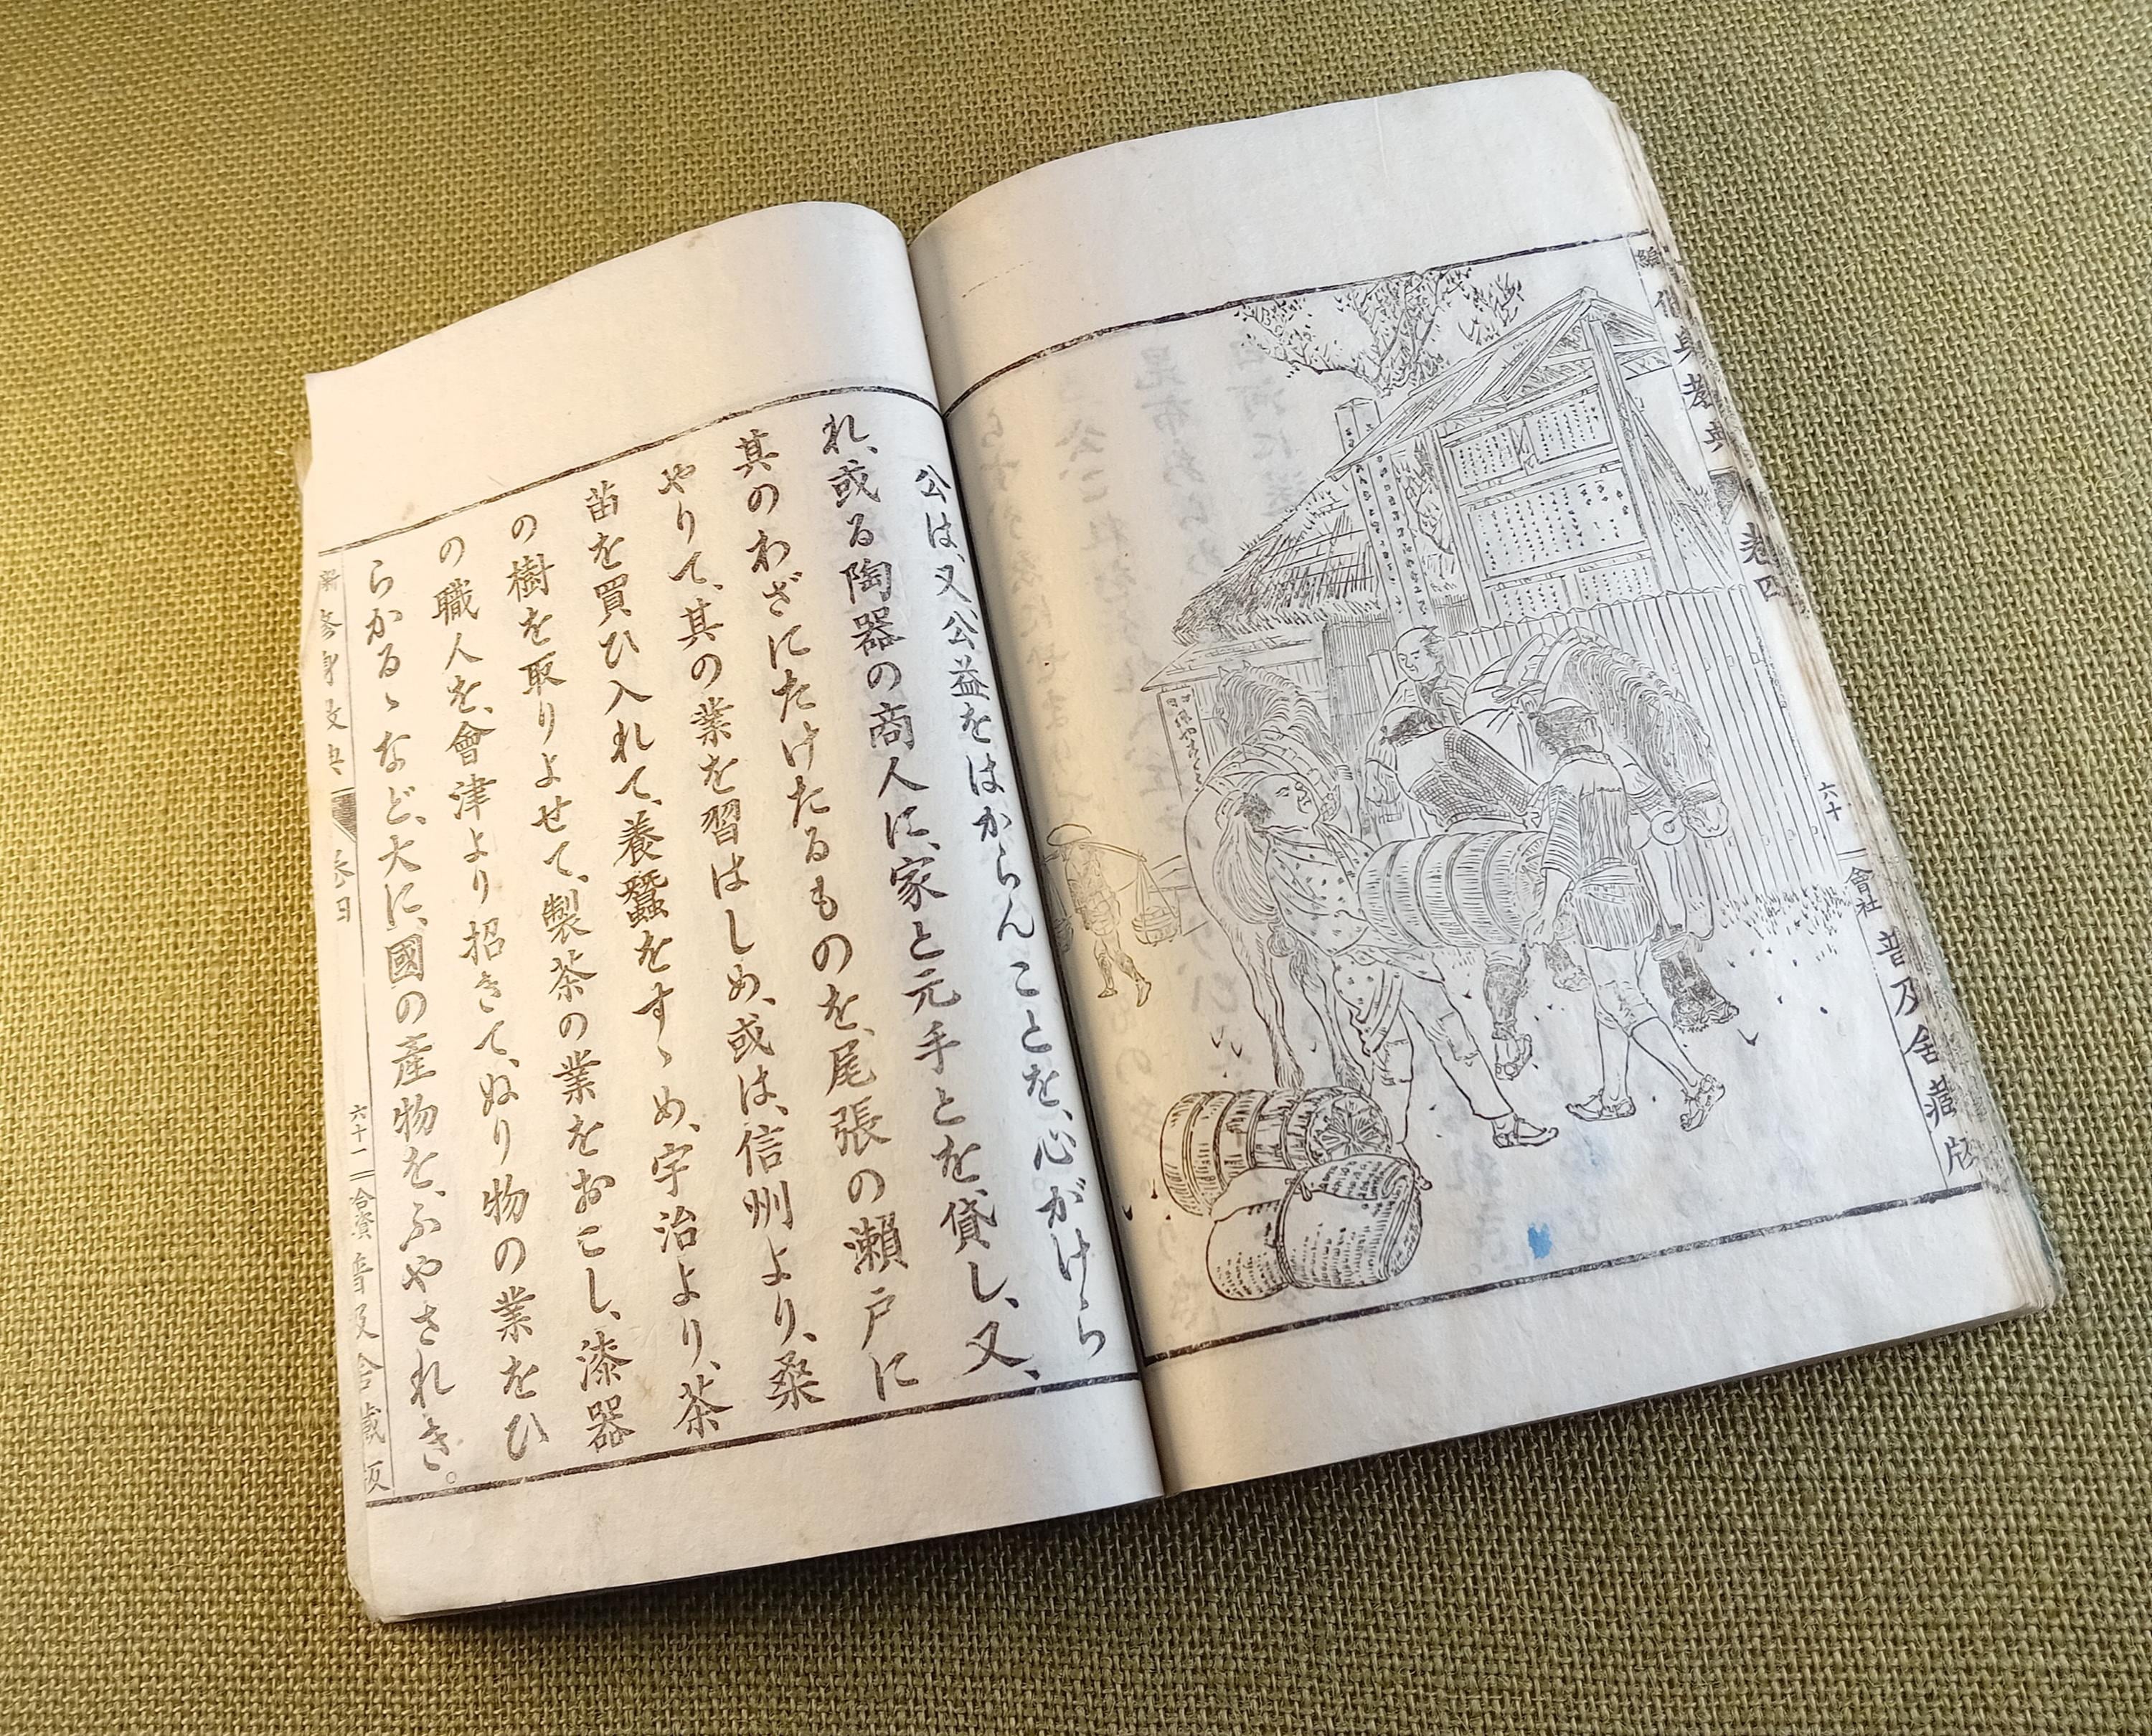 編
修身教典
巻四
六十
會社
普及舍藏版
公は、又公益をはからんことを、心がけゝら
れ、或る陶器の商人に、家と元手とを貸し、又、
其のわざにたけたるものを、尾張の瀬戸に
やりて、其の業を習はしめ、或は、信州より、桑
苗を買ひ入れて、養蠶をすゝめ、宇治より、茶
の樹を取りよせて、製茶の業をおこし、漆器
の職人を、會津より招きて、ぬり物の業をひ
らかるゝなど、大に、國の産物を、ふやされき。
六十一
合資
普及舍藏版